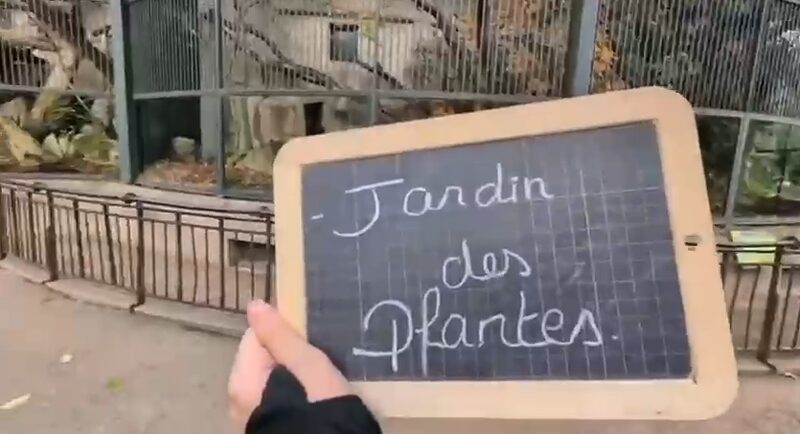 - Jardin
des
Plantes.